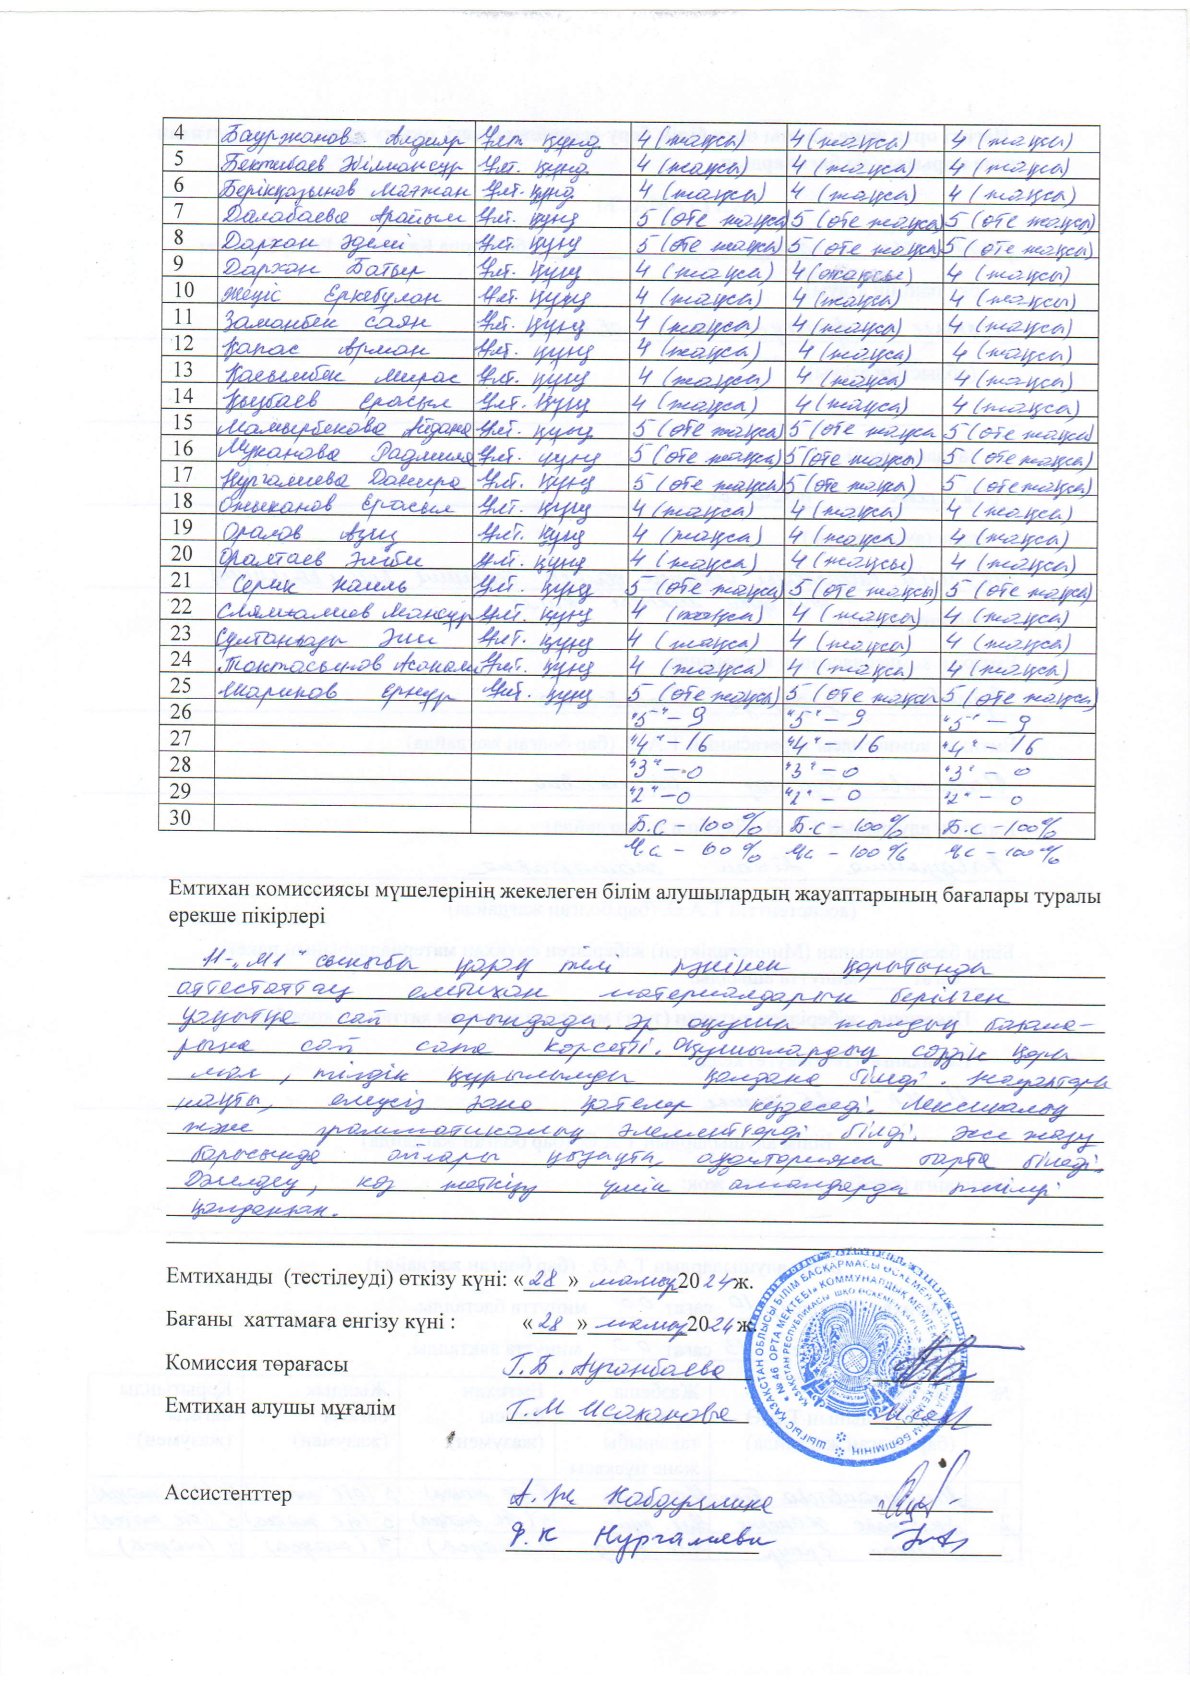 4 Бауржанов Алдияр Ұлт. құнд. 4 (жақсы) 4 (жақсы) 4 (жақсы)
5 Бектибаев Әбілмансұр Ұлт. құнд. 4 (жақсы) 4 (жақсы) 4 (жақсы)
6 Берікқазынов Матжан Ұлт. құнд. 4 (жақсы) 4 (жақсы) 4 (жақсы)
7 Далабаева Арайым Ұлт. құнд 5 (өте жақсы) 5 (өте жақсы) 5 (өте жақсы)
8 Дархан Әделі Ұлт. құнд 5 (өте жақсы) 5 (өте жақсы) 5 (өте жақсы)
9 Дархан Батыр Ұлт. құнд 4 (жақсы) 4 (жақсы) 4 (жақсы)
10 Жеңіс Еркебұлан Ұлт. құнд 4 (жақсы) 4 (жақсы) 4 (жақсы)
11 Заманбек Саян Ұлт. құнд 4 (жақсы) 4 (жақсы) 4 (жақсы)
12 Қапас Арман Ұлт. құнд 4 (жақсы) 4 (жақсы) 4 (жақсы)
13 Қасымбек Мирас Ұлт. құнд 4 (жақсы) 4 (жақсы) 4 (жақсы)
14 Ерасыл Ұлт. құнд 4 (жақсы) 4 (жақсы) 4 (жақсы)
15 Мамырбекова Айдана Ұлт. құнд 5 (өте жақсы) 5 (өте жақсы 5 (өте жақсы)
16 Муканова Радмила Ұлт. құнд 5 (өте жақсы) 5 (өте жақсы) 5 (өте жақсы)
17 Нургалиева Данира Ұлт. құнд 5 (өте жақсы) 5 (өте жақсы) 5 (өте жақсы)
18 Ерасыл Ұлт. құнд 4 (жақсы) 4 (жақсы) 4 (жақсы)
19 Оралов Азиз Ұлт. құнд 4 (жақсы) 4 (жақсы) 4 (жақсы)
20 Оралтаев Ұлт. құнд 4 (жақсы) 4 (жақсы) 4 (жақсы)
21 Серик Наиль Ұлт. құнд 5 (өте жақсы) 5 (өте жақсы) 5 (өте жақсы)
22 Слямхалиев Мансұр Ұлт. құнд 4 (жақсы) 4 (жақсы) 4 (жақсы)
23 Ұлт. құнд 4 (жақсы) 4 (жақсы) 4 (жақсы)
24 Токтасынов Асанали Ұлт. құнд 4 (жақсы) 4 (жақсы) 4 (жақсы)
25 Шарипов Ернұр Ұлт. құнд 5 (өте жақсы) 5 (өте жақсы 5 (өте жақсы)
26 "5" – 9 "5" – 9 "5" – 9
27 "4" – 16 "4" – 16 "4" – 16
28 "3" – 0 "3" – 0 "3" – 0
29 "2" – 0 "2" – 0 "2" – 0
30 Б.С – 100% Б.С – 100% Б.С – 100%
Ү.С – 100% Ү.С – 100% Ү.С – 100%
Емтихан комиссиясы мүшелерінің жекелеген білім алушылардың жауаптарының бағалары туралы
ерекше пікірлері
11-„М1" сыныбы қазақ тілі пәнінен қорытынды
аттестаттау емтихан материалдарын берілген
уақытқа сай орындады. Әр оқушы жылдық бағала-
рына сай сапа көрсетті. Оқушылардың сөздік қоры
мол, тілдік құрылымды қолдана білді. Жауаптары
нақты, емлесіз қателер кездеседі. Лексикалық
және грамматикалық элементтерді білді. Эссе жазу
барысында ойлары қызықты, аудиторияны тарта біледі.
Дәлелдеу, көз жеткізу үшін амалдарды тиімді
қолданған.
Емтиханды (тестілеуді) өткізу күні: «28» мамыр 2024 ж.
Бағаны хаттамаға енгізу күні : «28» мамыр 2024 ж.
Комиссия төрағасы Г.Б. Ауганбаева
Емтихан алушы мұғалім Г.М Исаканова
Ассистенттер А.Ж Кабдуалина
Ф.К Нургалиева